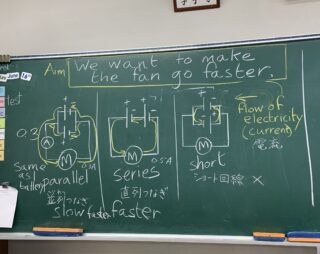 June 16th
Aim We want to make
the fan go faster.
test
0.2
A
M
0.3A
Same
as 1
battery
parallel
並列つなぎ
slow faster
M
0.5A
series
直列つなぎ
faster
M
short
ショート回線 ×
Flow of
electricity
(current)
電流